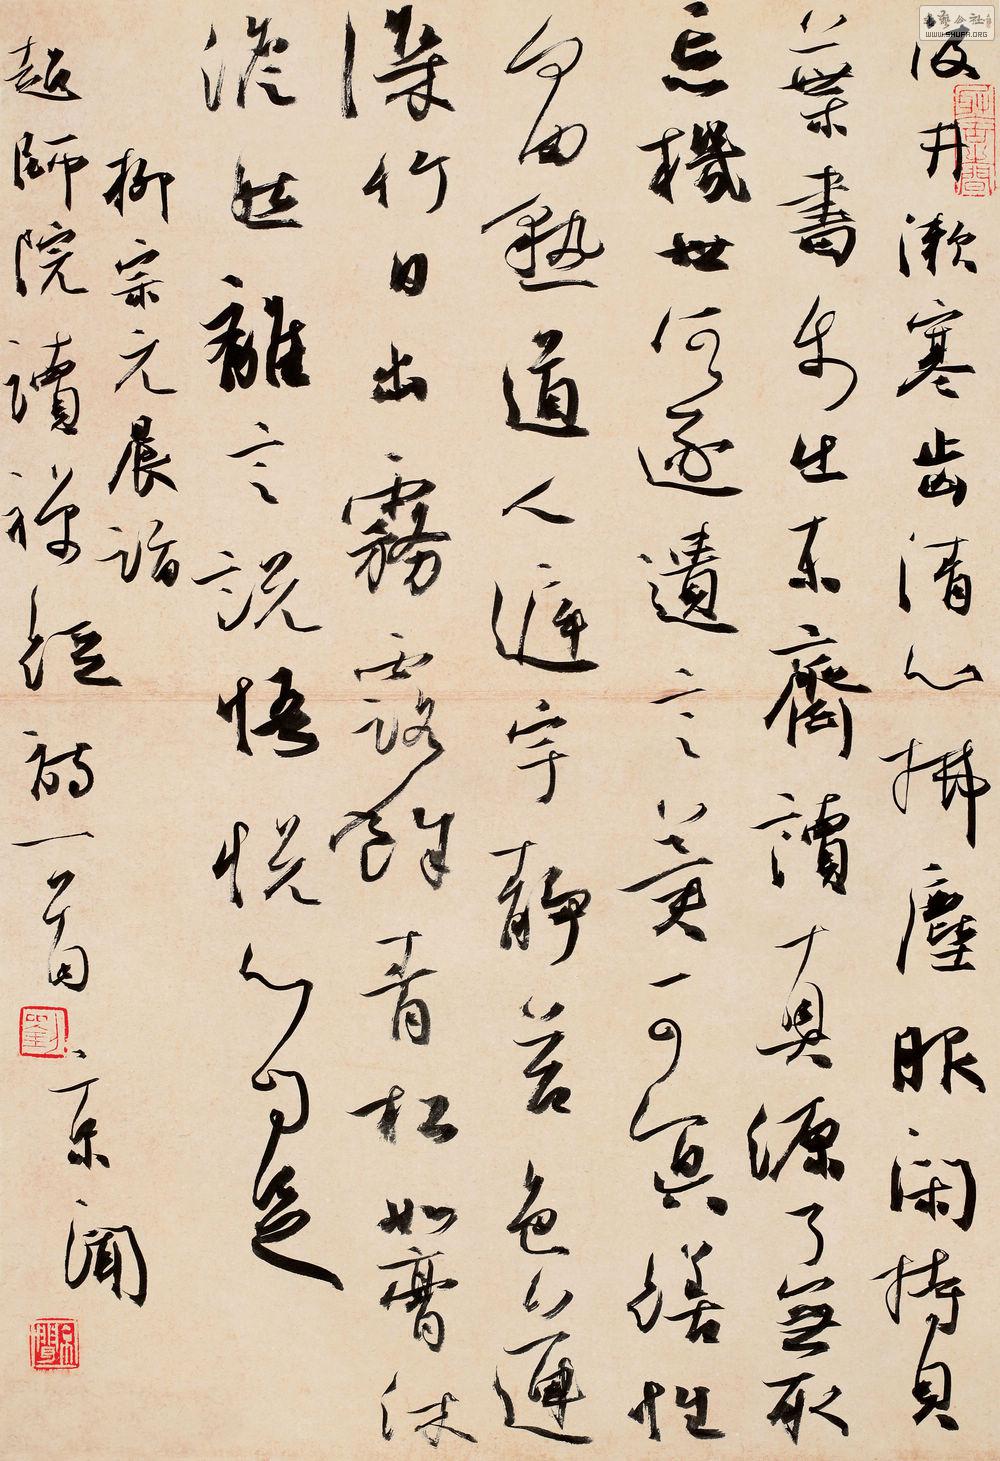 汲井漱寒齒清心拂塵眼閑持貝
葉書步出東齋讀真源了無取
忘機世所逐遺言冀可冥繕性
何由熟道人庭宇靜苔色連
深竹日出霧露餘青松如膏沐
澹然離言說悟悅心自足
柳宗元晨詣
超師院讀禪經詩一首
京聞
劉
WWW.SHUFA.ORG